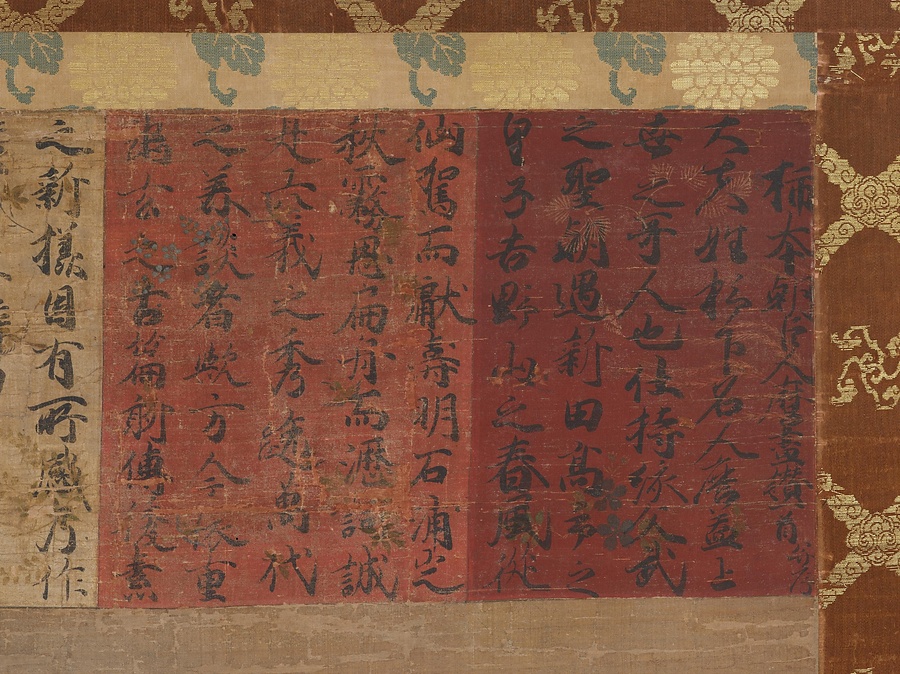 柿本朝臣人麿畫讃一首并序
大夫姓柿下名人麿蓋上
世之哥人也仕持統文武
之聖朝遇新田高市之
皇子吉野山之春風従
仙駕而獻壽明石浦之
秋霧思扁舟而瀝詞誠
是六義之秀逸萬代
之美談者歟方今依重
幽玄之古篇聊傳後素
之新様因有所感乃作